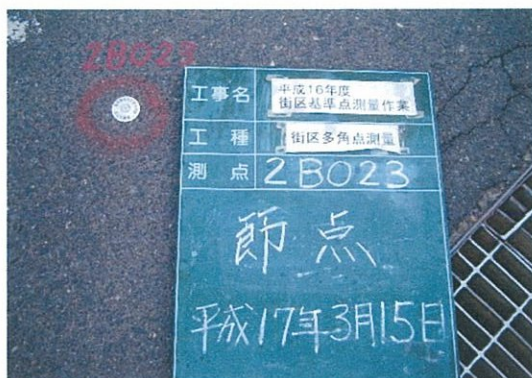 2B023
工事名 平成16年度
街区基準点測量作業
工種 街区多角点測量
測点 2B023
節点
平成17年3月15日